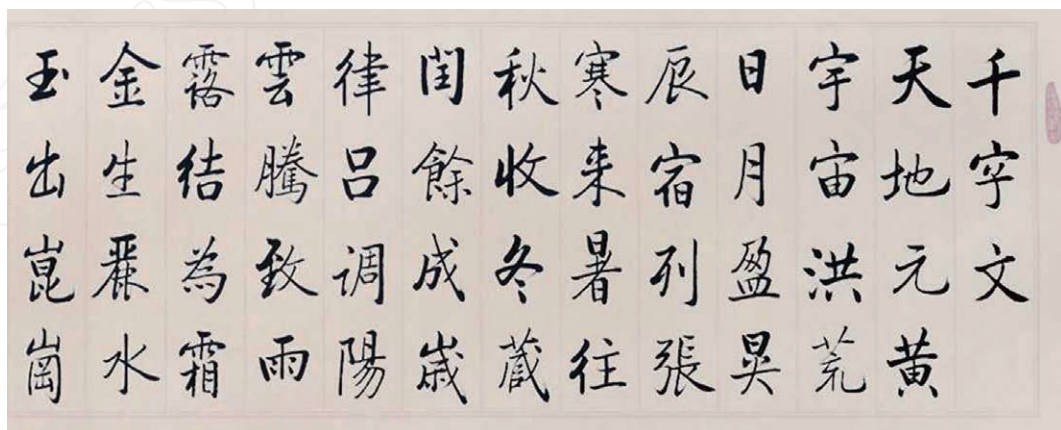 千字文
天地元黄
宇宙洪荒
日月盈昃
辰宿列張
寒来暑往
秋收冬藏
閏餘成歳
律吕调陽
雲騰致雨
露结為霜
金生麗水
玉出崑崗